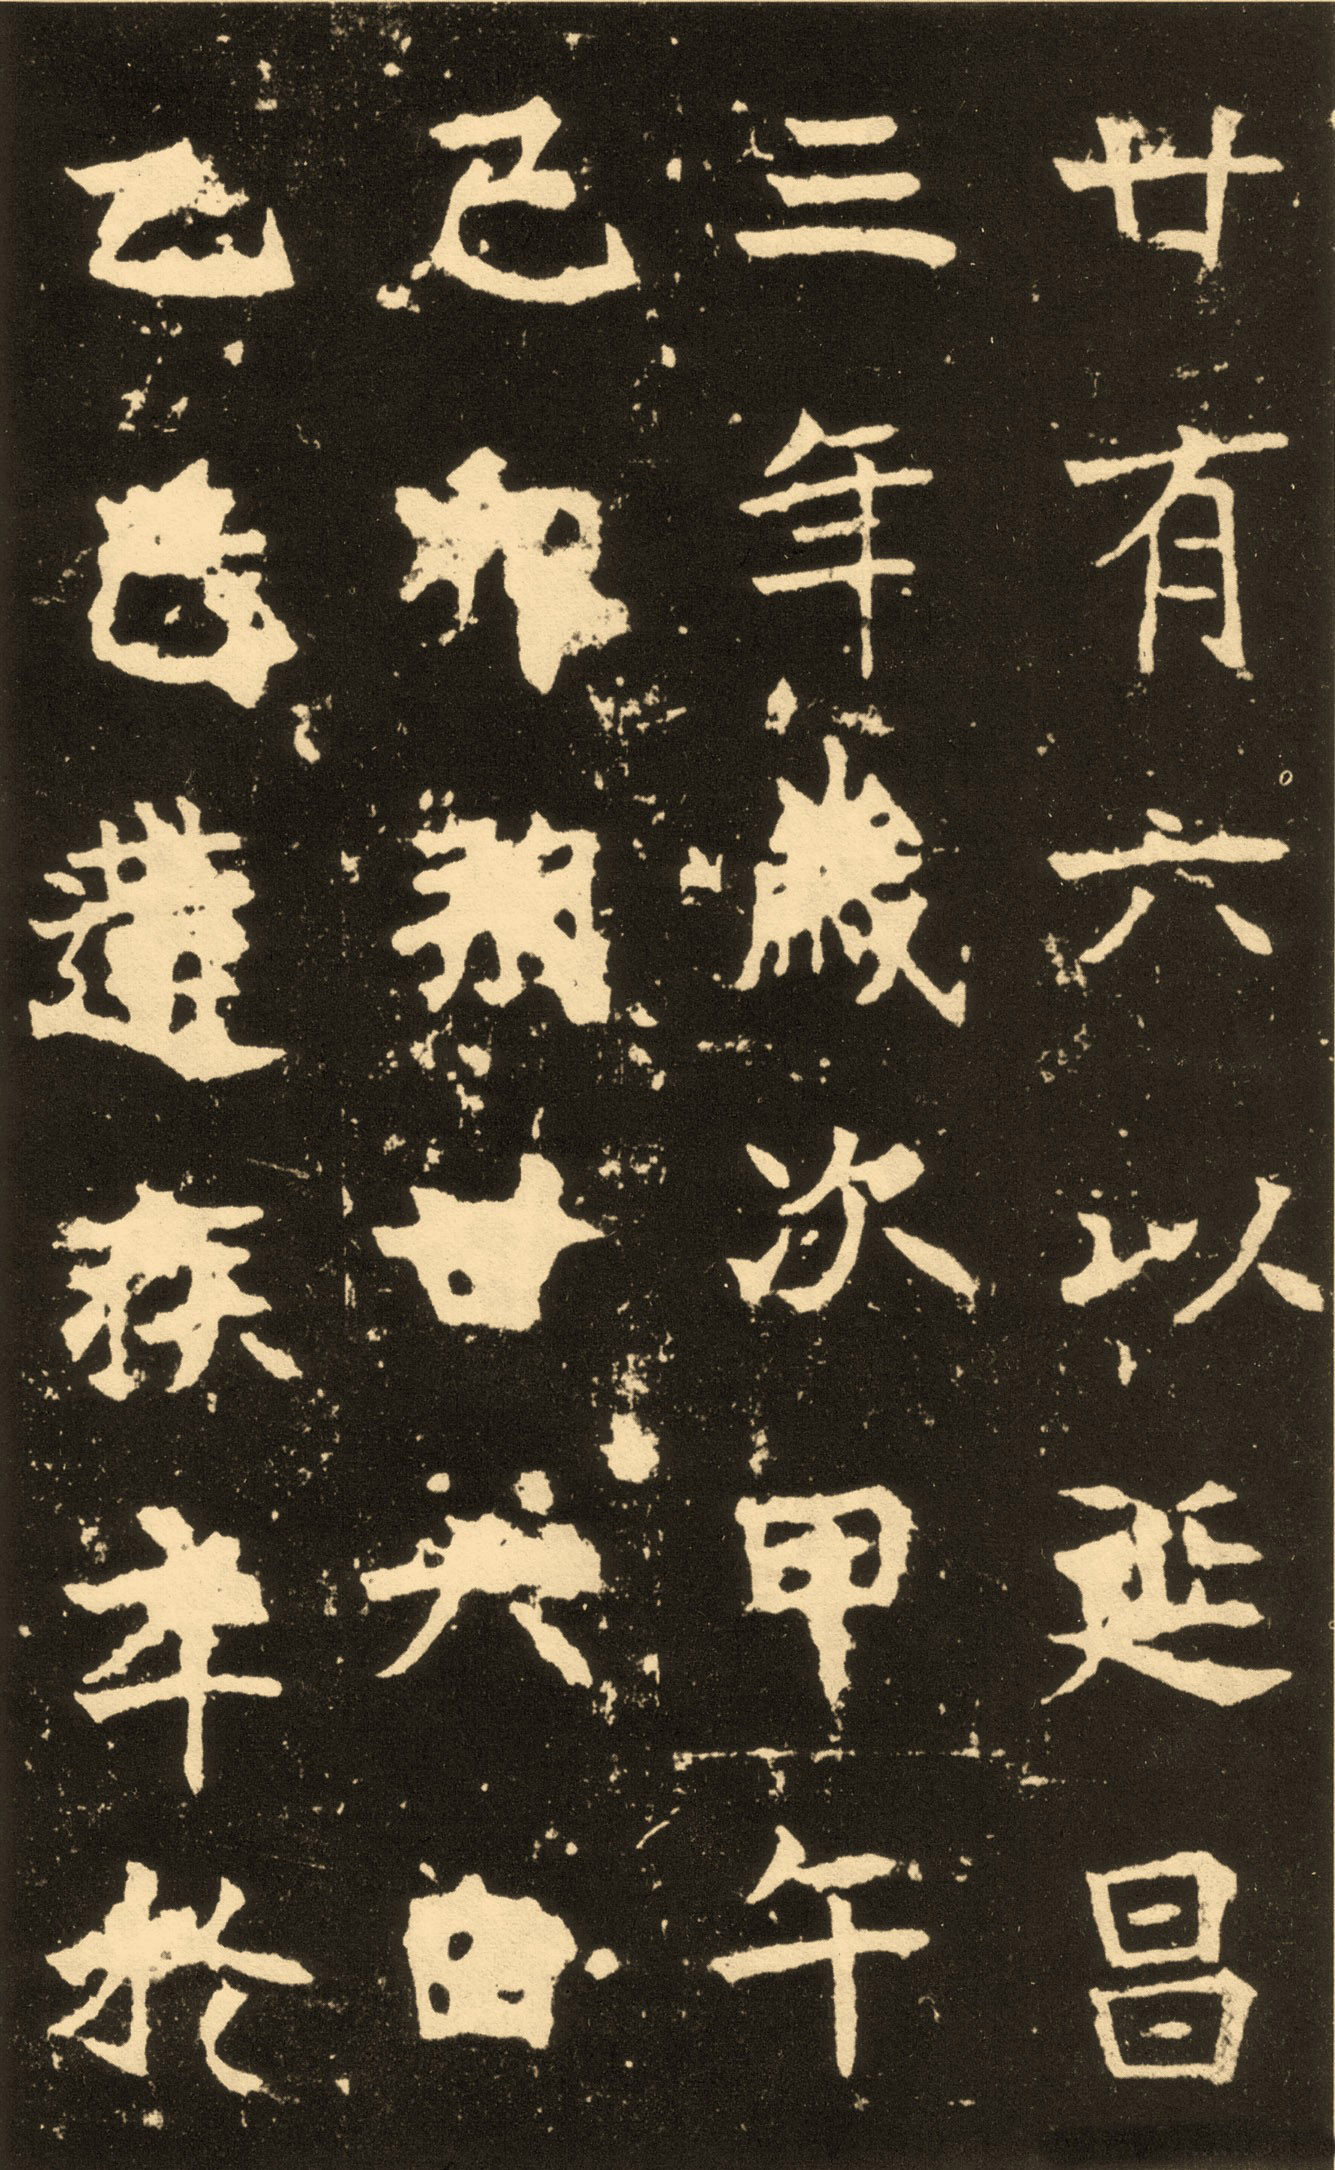 廿有六以延昌
三年歲次甲午
己卯朔廿六日
乙巳遘疾卒於